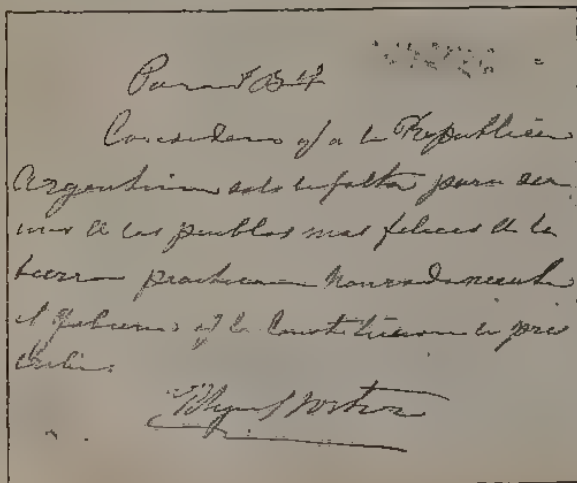 Para P B T
Considero q/ a la Republica
Argentina solo le falta para ser
uno de los pueblos mas felices de la
tierra practicar honradamente
el gobierno q/ la Constitucion le pres
cribe.